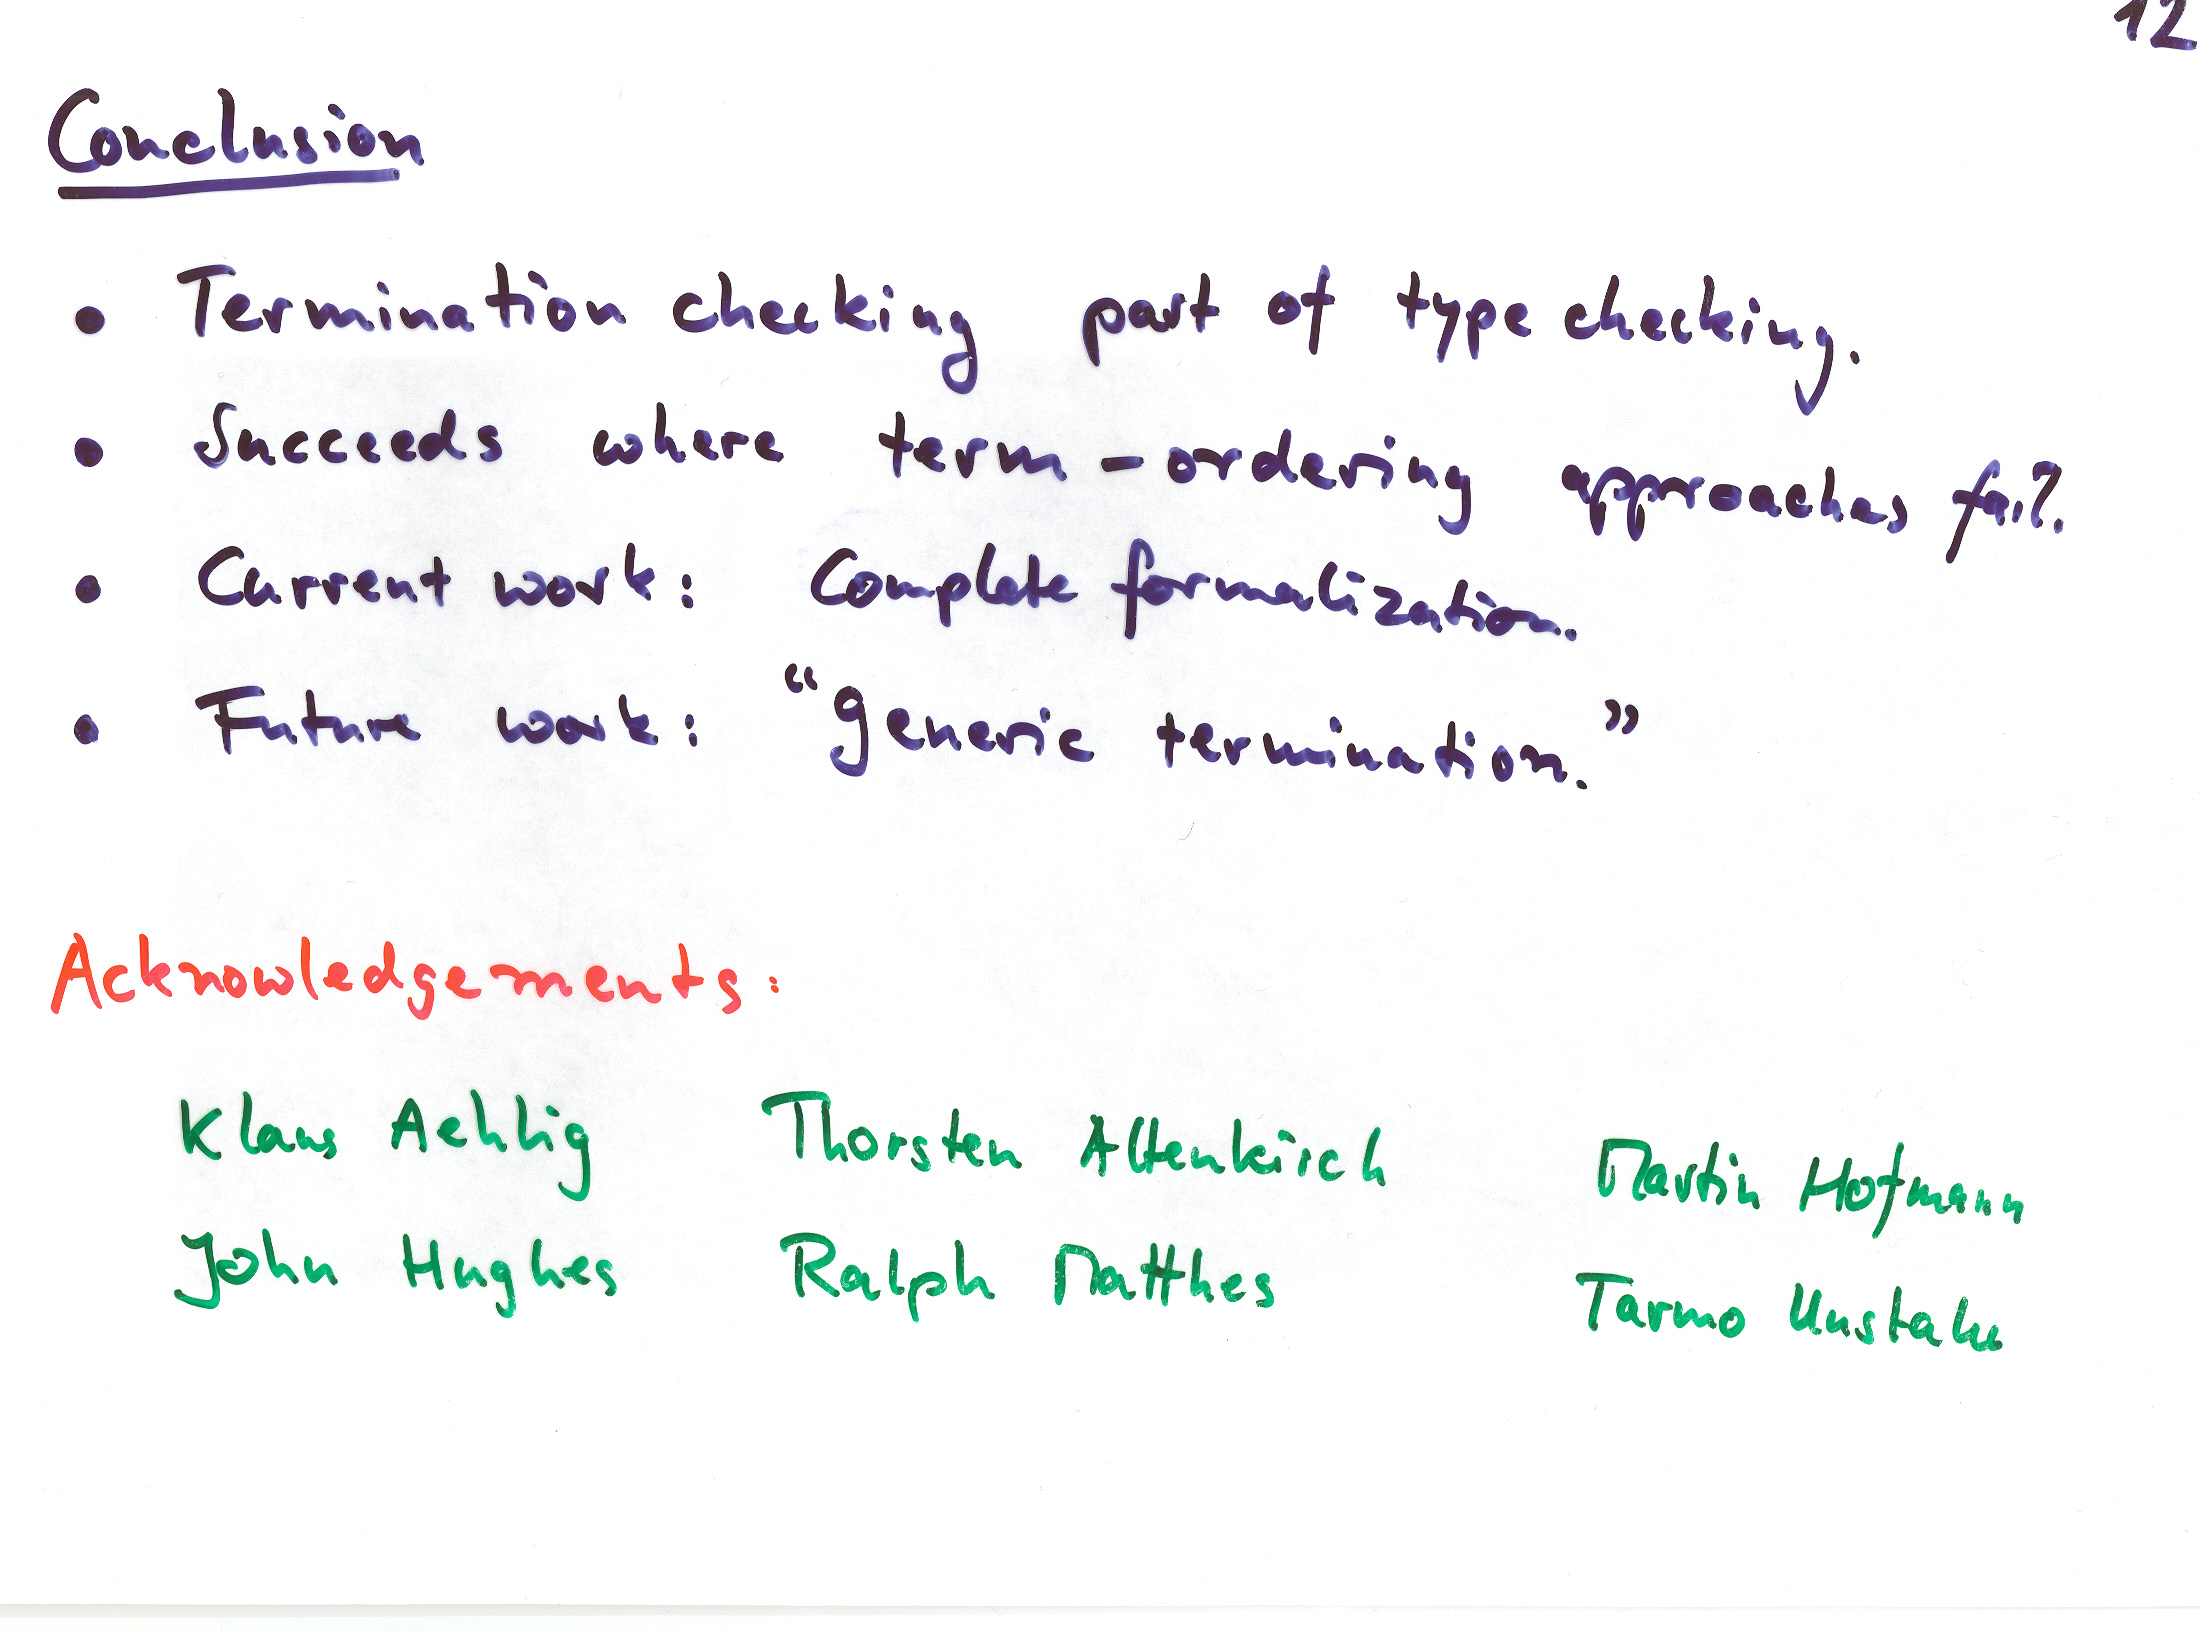 12
Conclusion
• Termination checking part of type checking.
• Succeeds where term-ordering approaches fail.
• Current work: Complete formalization.
• Future work: "generic termination."
Acknowledgements:
Klaus Aehlig Thorsten Altenkirch Martin Hofmann
John Hughes Ralph Matthes Tarmo Uustalu